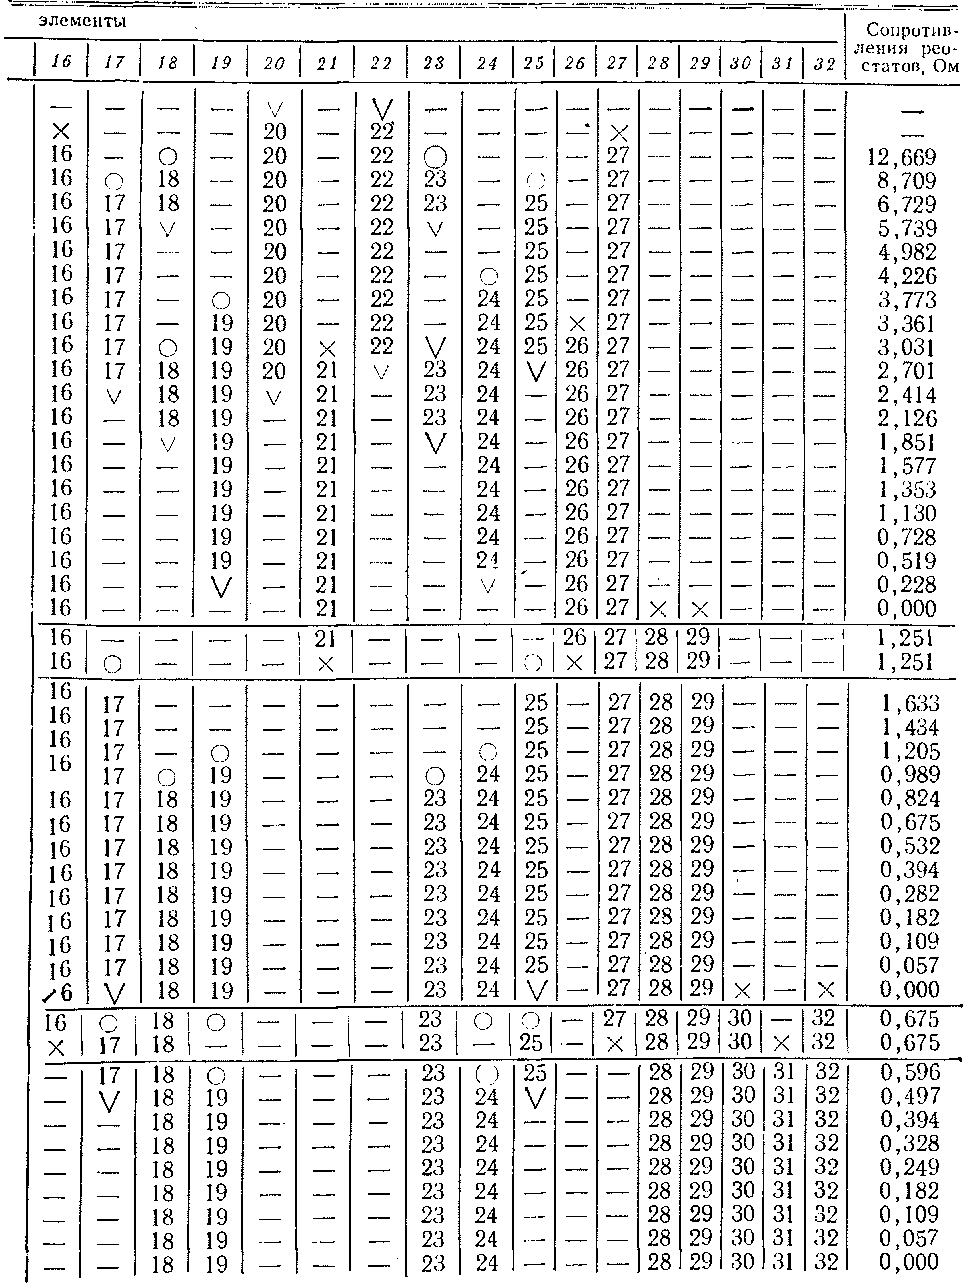 элементы
Сопротив-
ления рео-
статов, Ом
16 17 18 19 20 21 22 23 24 25 26 27 28 29 30 31 32
— — — — V — V — — — — — — — — — — —
× — — — 20 — 22 — — — — × — — — — — —
16 — ○ — 20 — 22 ○ — — — 27 — — — — — 12,669
16 ○ 18 — 20 — 22 23 — ○ — 27 — — — — — 8,709
16 17 18 — 20 — 22 23 — 25 — 27 — — — — — 6,729
16 17 V — 20 — 22 V — 25 — 27 — — — — — 5,739
16 17 — — 20 — 22 — — 25 — 27 — — — — — 4,982
16 17 — — 20 — 22 — ○ 25 — 27 — — — — — 4,226
16 17 — ○ 20 — 22 — 24 25 — 27 — — — — — 3,773
16 17 — 19 20 — 22 — 24 25 × 27 — — — — — 3,361
16 17 ○ 19 20 × 22 V 24 25 26 27 — — — — — 3,031
16 17 18 19 20 21 V 23 24 V 26 27 — — — — — 2,701
16 V 18 19 V 21 — 23 24 — 26 27 — — — — — 2,414
16 — 18 19 — 21 — 23 24 — 26 27 — — — — — 2,126
16 — V 19 — 21 — V 24 — 26 27 — — — — — 1,851
16 — — 19 — 21 — — 24 — 26 27 — — — — — 1,577
16 — — 19 — 21 — — 24 — 26 27 — — — — — 1,353
16 — — 19 — 21 — — 24 — 26 27 — — — — — 1,130
16 — — 19 — 21 — — 24 — 26 27 — — — — — 0,728
16 — — 19 — 21 — — 24 — 26 27 — — — — — 0,519
16 — — V — 21 — — V — 26 27 — — — — — 0,228
16 — — — — 21 — — — — 26 27 × × — — — 0,000
16 — — — — 21 — — — — 26 27 28 29 — — — 1,251
16 ○ — — — × — — — ○ × 27 28 29 — — — 1,251
16 17 — — — — — — — 25 — 27 28 29 — — — 1,633
16 17 — — — — — — — 25 — 27 28 29 — — — 1,434
16 17 — ○ — — — — ○ 25 — 27 28 29 — — — 1,205
16 17 ○ 19 — — — ○ 24 25 — 27 28 29 — — — 0,989
16 17 18 19 — — — 23 24 25 — 27 28 29 — — — 0,824
16 17 18 19 — — — 23 24 25 — 27 28 29 — — — 0,675
16 17 18 19 — — — 23 24 25 — 27 28 29 — — — 0,532
16 17 18 19 — — — 23 24 25 — 27 28 29 — — — 0,394
16 17 18 19 — — — 23 24 25 — 27 28 29 — — — 0,282
16 17 18 19 — — — 23 24 25 — 27 28 29 — — — 0,182
16 17 18 19 — — — 23 24 25 — 27 28 29 — — — 0,109
16 17 18 19 — — — 23 24 25 — 27 28 29 — — — 0,057
16 V 18 19 — — — 23 24 V — 27 28 29 × — × 0,000
16 ○ 18 ○ — — — 23 ○ ○ — 27 28 29 30 — 32 0,675
× 17 18 — — — — 23 — 25 — × 28 29 30 × 32 0,675
— 17 18 ○ — — — 23 ○ 25 — — 28 29 30 31 32 0,596
— V 18 19 — — — 23 24 V — — 28 29 30 31 32 0,497
— — 18 19 — — — 23 24 — — — 28 29 30 31 32 0,394
— — 18 19 — — — 23 24 — — — 28 29 30 31 32 0,328
— — 18 19 — — — 23 24 — — — 28 29 30 31 32 0,249
— — 18 19 — — — 23 24 — — — 28 29 30 31 32 0,182
— — 18 19 — — — 23 24 — — — 28 29 30 31 32 0,109
— — 18 19 — — — 23 24 — — — 28 29 30 31 32 0,057
— — 18 19 — — — 23 24 — — — 28 29 30 31 32 0,000